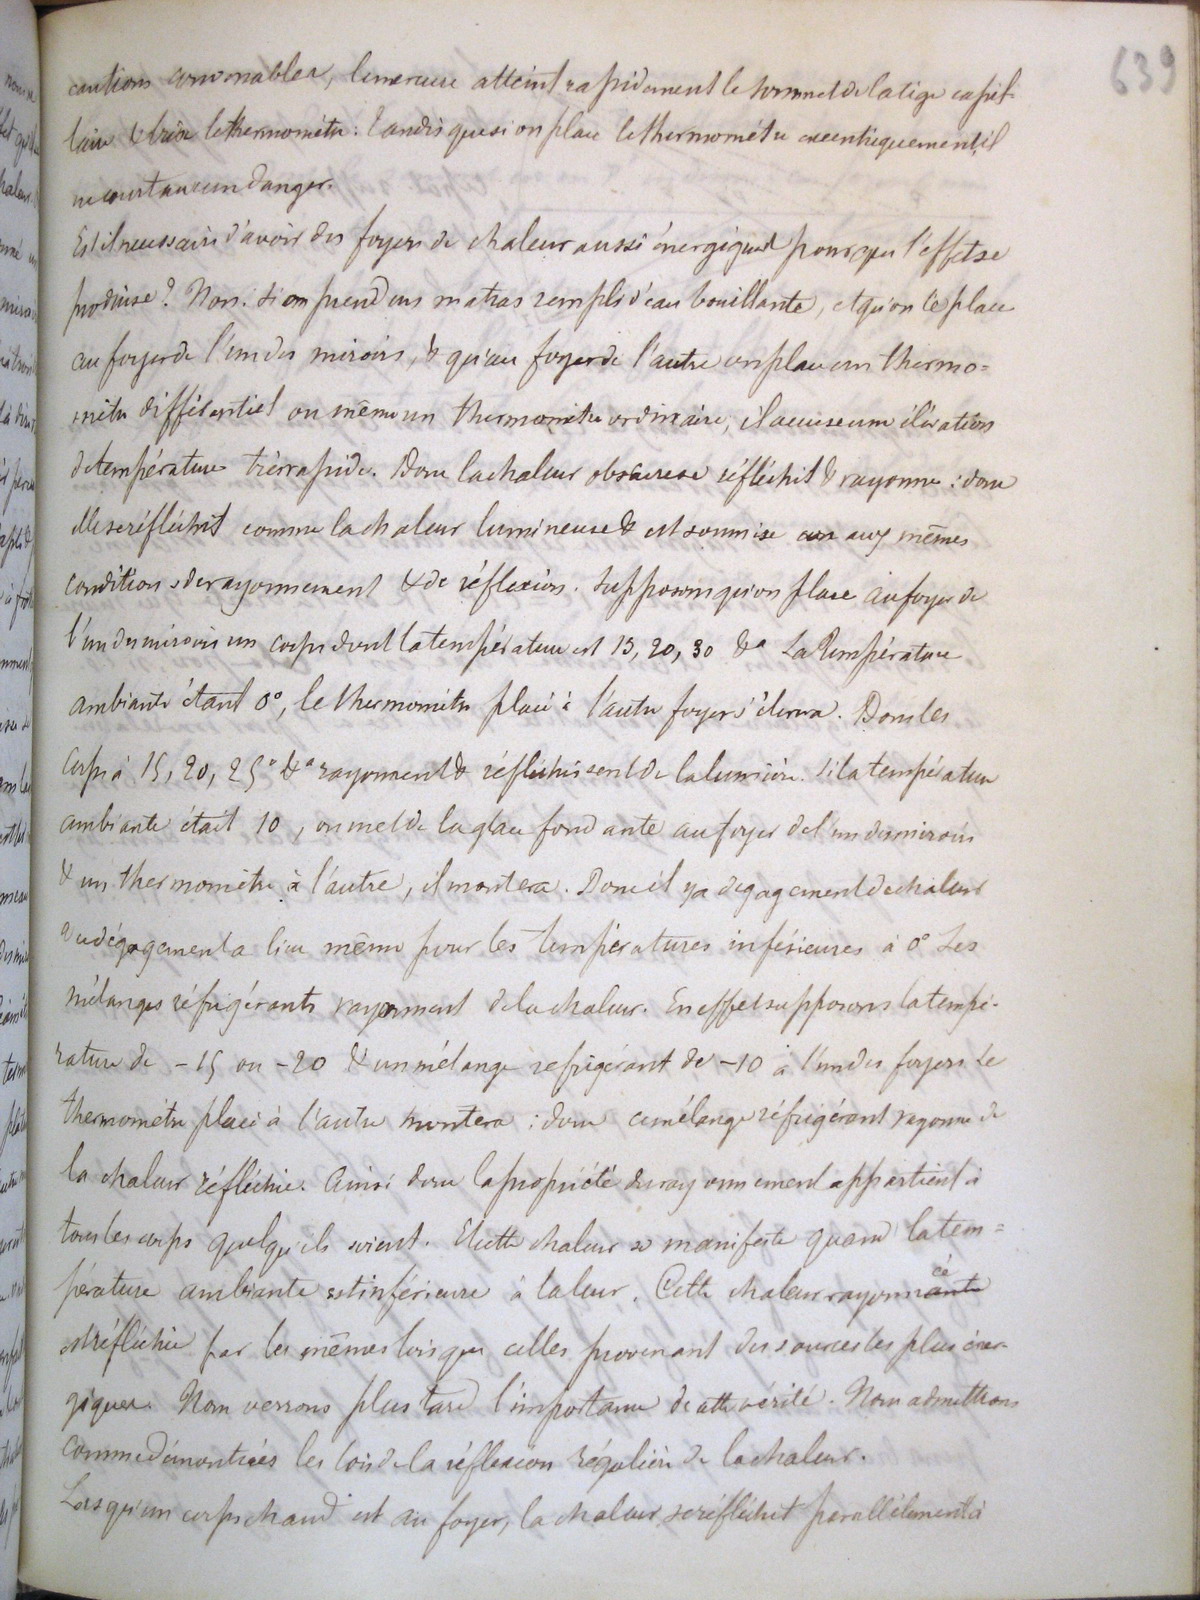 639
cautions convenables, le mercure atteint rapidement le sommet de la tige capil-
laire & brise le thermomètre : tandis que si on place le thermomètre excentriquement, il
ne court aucun danger.
Est il nécessaire d'avoir des foyers de chaleur aussi énergiques pour que l'effet se
produise ? Non. Si on prend un matras rempli d'eau bouillante, et qu'on le place
au foyer de l'un des miroirs, & qu'au foyer de l'autre on place un thermo=
mètre différentiel ou même un thermomètre ordinaire, il accuse une élévation
de température très rapide. Donc la chaleur obscure se réfléchit & rayonne : donc
elle se réfléchit comme la chaleur lumineuse & est soumise aux mêmes
conditions de rayonnement & de réflexion. Supposons qu'on place au foyer de
l'un des miroirs un corps dont la température est 15, 20, 30 &a La température
ambiante étant 0°, le thermomètre placé à l'autre foyer s'élèvera. Donc les
corps à 15, 20, 25° &a rayonnent & réfléchissent de la lumière. Si la température
ambiante était 10, on met de la glace fondante au foyer de l'un des miroirs
& un thermomètre à l'autre, il montera. Donc il y a dégagement de chaleur
Ce dégagement a lieu même pour les températures inférieures à 0° Les
mélanges réfrigérants rayonnent de la chaleur. En effet supposons la tempé-
rature de -15 ou -20 & un mélange refrigérant de -10 à l'un des foyers Le
thermomètre placé à l'autre montera : donc ce mélange réfrigérant rayonne de
la chaleur réfléchie. Ainsi donc la propriété du rayonnement appartient à
tous les corps quelqu'ils soient. Et cette chaleur se manifeste quand la tem=
pérature ambiante est inférieure à la leur. Cette chaleur rayonnante
est réfléchie par les mêmes lois que celles provenant des sources les plus éner-
giques. Nous verrons plus tard l'importance de cette vérité. Nous admettrons
comme démontrées les lois de la réflexion régulière de la chaleur.
Lorsqu'un corps chaud est au foyer, la chaleur se réfléchit parallèlement à